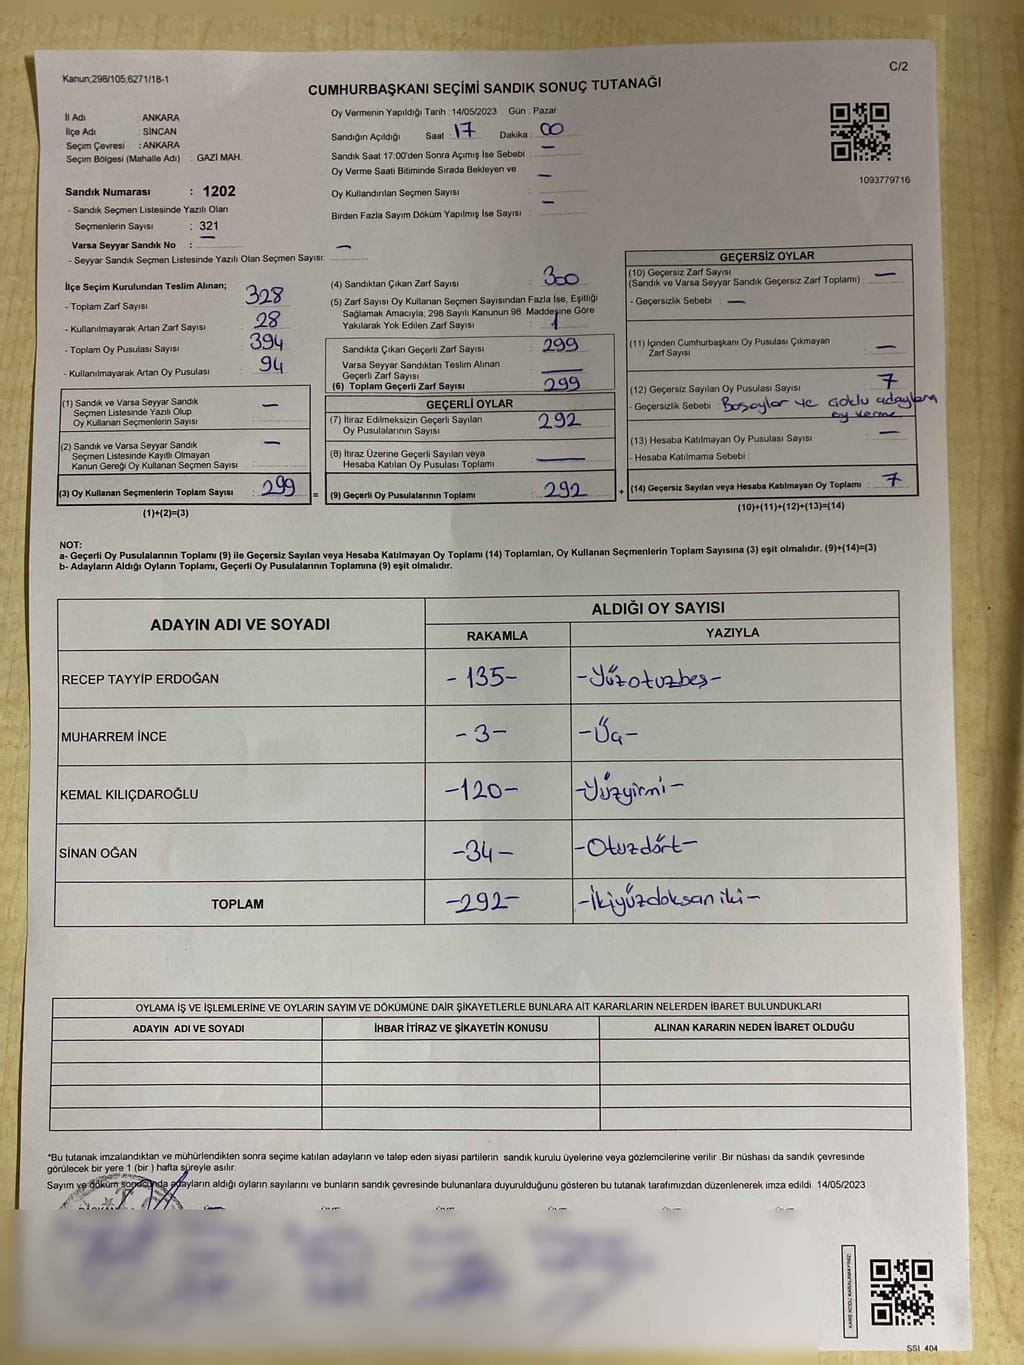 Kanun;298/105,6271/18-1
C/2
CUMHURBAŞKANI SEÇİMİ SANDIK SONUÇ TUTANAĞI
İl Adı : ANKARA
İlçe Adı : SİNCAN
Seçim Çevresi : ANKARA
Seçim Bölgesi (Mahalle Adı) : GAZİ MAH.
Sandık Numarası : 1202
- Sandık Seçmen Listesinde Yazılı Olan
Seçmenlerin Sayısı : 321
Varsa Seyyar Sandık No : —
- Seyyar Sandık Seçmen Listesinde Yazılı Olan Seçmen Sayısı: —
Oy Vermenin Yapıldığı Tarih : 14/05/2023 Gün : Pazar
Sandığın Açıldığı Saat : 17 Dakika : 00
Sandık Saat 17:00'den Sonra Açımış İse Sebebi : —
Oy Verme Saati Bitiminde Sırada Bekleyen ve
Oy Kullandırılan Seçmen Sayısı : —
Birden Fazla Sayım Döküm Yapılmış İse Sayısı : —
1093779716
İlçe Seçim Kurulundan Teslim Alınan;
- Toplam Zarf Sayısı : 328
- Kullanılmayarak Artan Zarf Sayısı : 28
- Toplam Oy Pusulası Sayısı : 394
- Kullanılmayarak Artan Oy Pusulası : 94
(1) Sandık ve Varsa Seyyar Sandık
Seçmen Listesinde Yazılı Olup
Oy Kullanan Seçmenlerin Sayısı : —
(2) Sandık ve Varsa Seyyar Sandık
Seçmen Listesinde Kayıtlı Olmayan
Kanun Gereği Oy Kullanan Seçmen Sayısı : —
(3) Oy Kullanan Seçmenlerin Toplam Sayısı : 299
(1)+(2)=(3)
(4) Sandıktan Çıkan Zarf Sayısı : 300
(5) Zarf Sayısı Oy Kullanan Seçmen Sayısından Fazla İse, Eşitliği
Sağlamak Amacıyla; 298 Sayılı Kanunun 98. Maddesine Göre
Yakılarak Yok Edilen Zarf Sayısı : 1
Sandıkta Çıkan Geçerli Zarf Sayısı : 299
Varsa Seyyar Sandıktan Teslim Alınan
Geçerli Zarf Sayısı : —
(6) Toplam Geçerli Zarf Sayısı : 299
GEÇERLİ OYLAR
(7) İtiraz Edilmeksizin Geçerli Sayılan
Oy Pusulalarının Sayısı : 292
(8) İtiraz Üzerine Geçerli Sayılan veya
Hesaba Katılan Oy Pusulası Toplamı : —
= (9) Geçerli Oy Pusulalarının Toplamı : 292 +
GEÇERSİZ OYLAR
(10) Geçersiz Zarf Sayısı
(Sandık ve Varsa Seyyar Sandık Geçersiz Zarf Toplamı) : —
- Geçersizlik Sebebi : —
(11) İçinden Cumhurbaşkanı Oy Pusulası Çıkmayan
Zarf Sayısı : —
(12) Geçersiz Sayılan Oy Pusulası Sayısı : 7
- Geçersizlik Sebebi : Boşoylar ve çoklu adaylara
oy verme
(13) Hesaba Katılmayan Oy Pusulası Sayısı : —
- Hesaba Katılmama Sebebi :
(14) Geçersiz Sayılan veya Hesaba Katılmayan Oy Toplamı : 7
(10)+(11)+(12)+(13)=(14)
NOT:
a- Geçerli Oy Pusulalarının Toplamı (9) ile Geçersiz Sayılan veya Hesaba Katılmayan Oy Toplamı (14) Toplamları, Oy Kullanan Seçmenlerin Toplam Sayısına (3) eşit olmalıdır. (9)+(14)=(3)
b- Adayların Aldığı Oyların Toplamı, Geçerli Oy Pusulalarının Toplamına (9) eşit olmalıdır.
ADAYIN ADI VE SOYADI
ALDIĞI OY SAYISI
RAKAMLA YAZIYLA
RECEP TAYYİP ERDOĞAN -135- -Yüzotuzbeş-
MUHARREM İNCE -3- -Üç-
KEMAL KILIÇDAROĞLU -120- -Yüzyirmi-
SİNAN OĞAN -34- -Otuzdört-
TOPLAM -292- -İkiyüzdoksan iki-
OYLAMA İŞ VE İŞLEMLERİNE VE OYLARIN SAYIM VE DÖKÜMÜNE DAİR ŞİKAYETLERLE BUNLARA AİT KARARLARIN NELERDEN İBARET BULUNDUKLARI
ADAYIN ADI VE SOYADI İHBAR İTİRAZ VE ŞİKAYETİN KONUSU ALINAN KARARIN NEDEN İBARET OLDUĞU
*Bu tutanak imzalandıktan ve mühürlendikten sonra seçime katılan adayların ve talep eden siyasi partilerin sandık kurulu üyelerine veya gözlemcilerine verilir .Bir nüshası da sandık çevresinde
görülecek bir yere 1 (bir ) hafta süreyle asılır.
Sayım ve döküm sonucunda adayların aldığı oyların sayılarını ve bunların sandık çevresinde bulunanlara duyurulduğunu gösteren bu tutanak tarafımızdan düzenlenerek imza edildi. 14/05/2023
KARE KODU KARALAMAYINIZ.
SSI 404